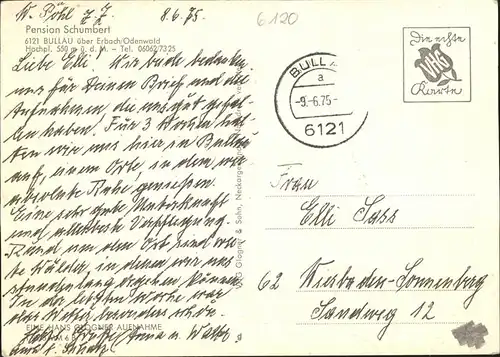 W. Pöhl z. Z. 8.6.75.
6120
Pension Schumbert
6121 BULLAU über Erbach/Odenwald
Hochpl. 550 m ü. d. M. - Tel. 06062/7325
Liebe Elli! Wir beide bedanken
uns für Deinen Brief und die
Aufnahmen, die uns gut gefal-
len haben. Für 3 Wochen hal-
ten wir uns hier in Bullau
auf, einem Orte, in dem wir
absolute Ruhe genießen.
Eine sehr gute Unterkunft
und allerbeste Verpflegung.
Rund um den Ort sind die
Wälder, in denen wir uns
stundenlang ergehen können.
In der letzten Woche war
das Wetter besonders schön.
EINE HANS GLOGNER AUFNAHME
Grüße Anna u. Walth.
Glogner & Sohn, Neckar
Die echte
Karte
BULLAU
a
-9.-6.75-
6121
Frau
Elli Sass
62 Wiesbaden-Sonnenberg
Sandweg 12